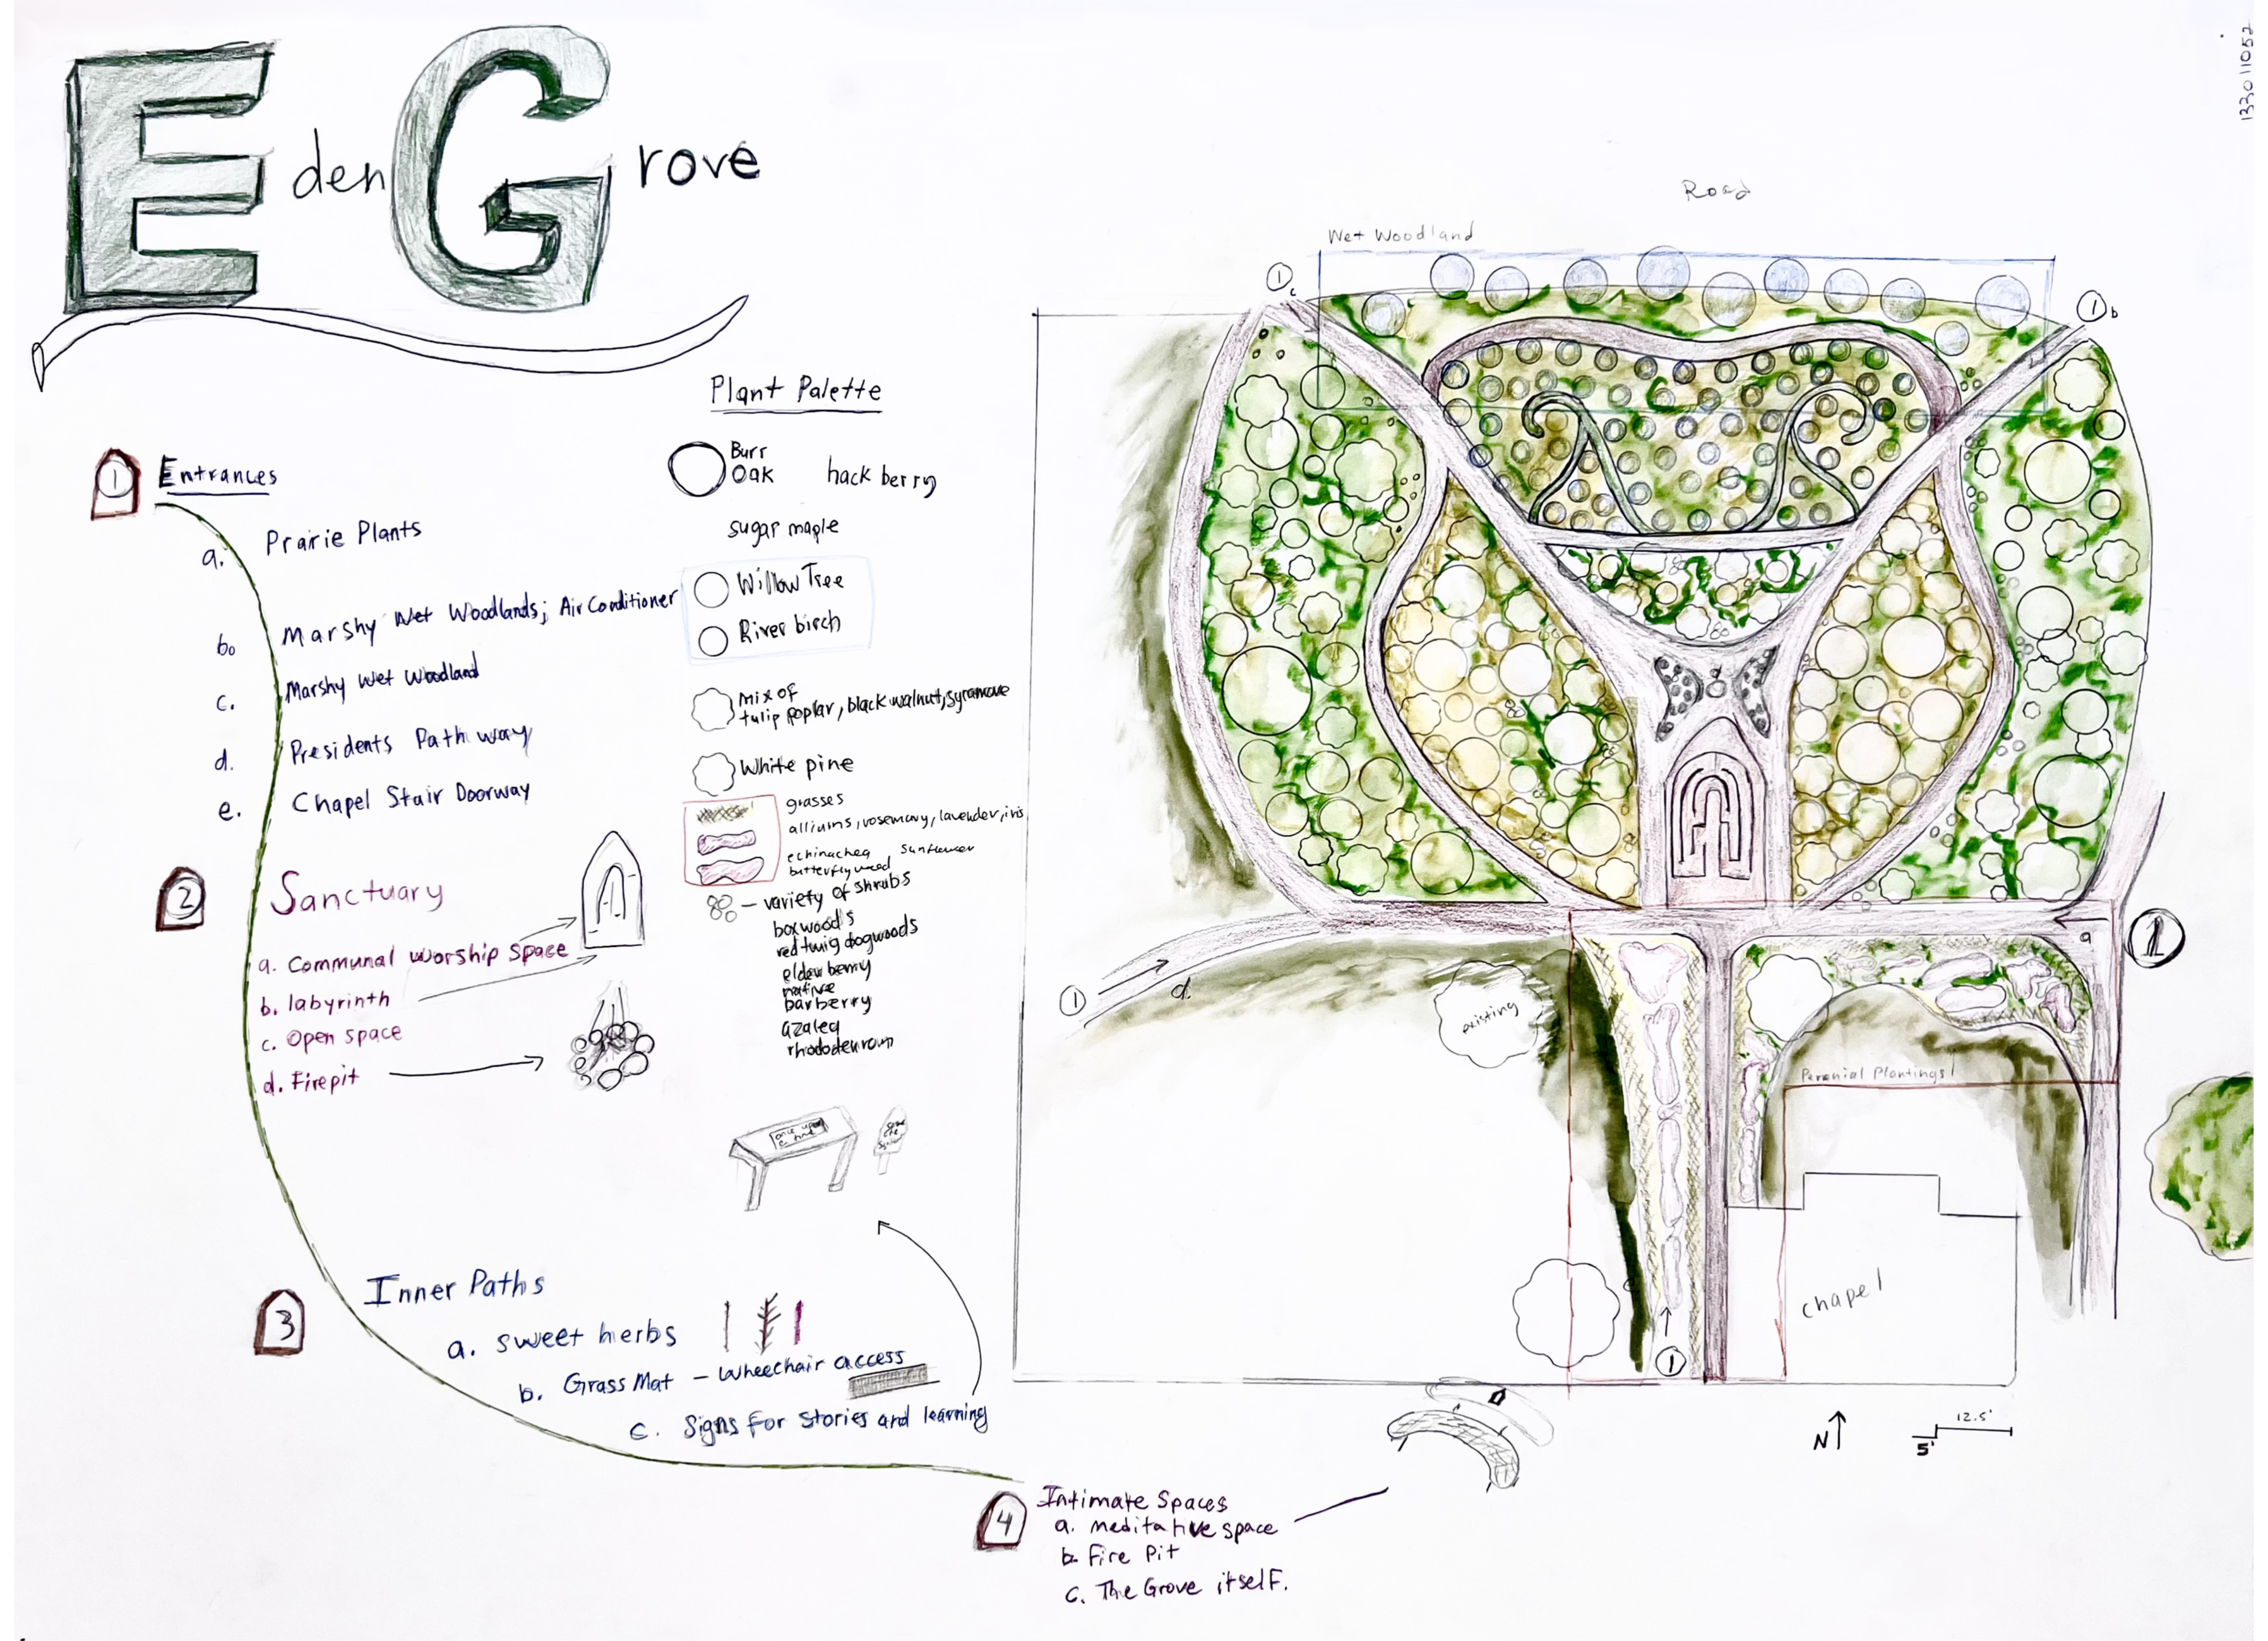 Eden Grove
133011052
Plant Palette
Burr
Oak
hack berry
sugar maple
Willow Tree
River birch
mix of
tulip poplar, black walnut, sycamore
White pine
grasses
alliums, rosemary, lavender, iris
echinachea sunflower
butterfly weed
variety of shrubs
boxwoods
red twig dogwoods
elderberry
native
barberry
azalea
rhododenron
1 Entrances
a. Prairie Plants
b. Marshy Wet Woodlands; Air Conditioner
c. Marshy Wet Woodland
d. Presidents Path way
e. Chapel Stair Doorway
2 Sanctuary
a. Communal worship space
b. labyrinth
c. Open space
d. Firepit
once upon
a time
3 Inner Paths
a. sweet herbs
b. Grass Mat - Wheechair access
c. Signs for stories and learning
4 Intimate Spaces
a. meditative space
b. Fire Pit
c. The Grove itself.
Road
Wet Woodland
1 c
1 b
1
a
1 d.
existing
Perenial Plantings
chapel
1
N
5'
12.5'